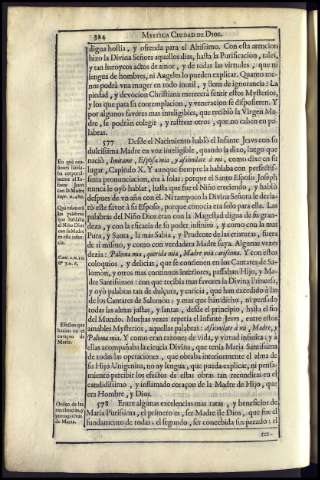 384 MYSTICA CIUDAD DE DIOS.
digna hostia, y ofrenda para el Altissimo. Con esta atencion
hizo la Divina Señora aquellos dias, hasta la Purificacion, tales,
y tan heroycos actos de amor, y de todas las virtudes, que ni
lengua de hombres, ni Angeles lo pueden explicar. Quanto me-
nos podrà una muger en todo inutil, y llena de ignorancia: La
piedad, y devocion Christiana merecerà sentir estos Mysterios,
y los que para su contemplacion, y veneracion se dispusieren. Y
por algunos favores mas inteligibles, que recibiò la Virgen Ma-
dre, se podràn colegir, y rastrear otros, que no caben en pa-
labras.
577 Desde el Nacimiento hablò el Infante Jesvs con su
dulcissima Madre en voz inteligible, quando la dixo, luego que
naciò, Imitame, Esposa mia, y assimilate à mi, como dixe en su
lugar, Capitulo X. Y aunque siempre la hablaba con perfectissi-
ma pronunciacion, era à solas: porque el Santo Esposo Joseph
nunca le oyò hablar, hasta que fue el Niño creciendo, y hablò
despues de un año con èl. Ni tampoco la Divina Señora le decla-
rò este favor à su Esposo, porque conocia era solo para ella. Las
palabras del Niño Dios eran con la Magestad digna de su gran-
deza, y con la eficacia de su poder infinito, y como con la mas
Pura, y Santa, la mas Sabia, y Prudente de las criaturas, fuera
de sì mismo, y como con verdadera Madre suya. Algunas vezes
dezia: Paloma mia, querida mia, Madre mia carissima. Y con estos
coloquios, y delicias, que se contienen en los Cantares de Sa-
lomon, y otros mas continuos interiores, passaban Hijo, y Ma-
dre Santissimos: con que recibiò mas favores la Divina Princesa,
y oyò palabras tan de dulçura, y caricia, que han excedido à las
de los Cantares de Salomon: y mas que han dicho, ni puedan dezir
todas las almas justas, y santas, desde el principio, hasta el fin
del Mundo. Muchas vezes repetia el Infante Jesvs, entre estos
amables Mysterios, aquellas palabras: Assimilate à mi, Madre, y
Paloma mia. Y como eran razones de vida, y virtud infinita; y à
ellas acompañaba la ciencia Divina, que tenia Maria Santissima
de todas las operaciones, que obraba interiormente el alma de
su Hijo Unigenito, no ay lengua, que pueda explicar, ni pen-
samiento percibir los efectos de estas obras tan reconditas en el
candidissimo, y inflamado coraçon de la Madre de Hijo, que
era Hombre, y Dios.
578 Entre algunas excelencias mas raras, y beneficios de
Maria Purissima, el primero es, ser Madre de Dios, que fue el
fundamento de todas: el segundo, ser concebida sin pecado: el